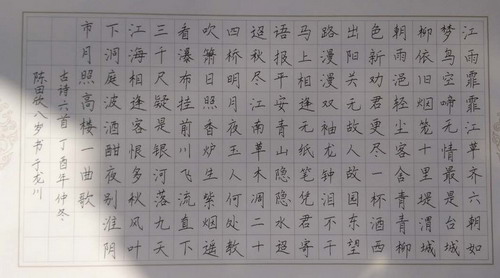 江雨霏霏江草齐六朝如
梦鸟空啼无情最是台城
柳依旧烟笼十里堤渭城
朝雨浥轻尘客舍青青柳
色新劝君更尽一杯酒西
出阳关无故人故园东望
路漫漫双袖龙钟泪不干
马上相逢无纸笔凭君寄
语报平安青山隐隐水迢
迢秋尽江南草木凋二十
四桥明月夜玉人何处教
吹箫日照香炉生紫烟遥
看瀑布挂前川飞流直下
三千尺疑是银河落九天
江海相逢客恨多秋风叶
下洞庭波酒酣夜别淮阴
市月照高楼一曲歌
古诗六首 丁酉年仲冬
陈田欣八岁书于龙川